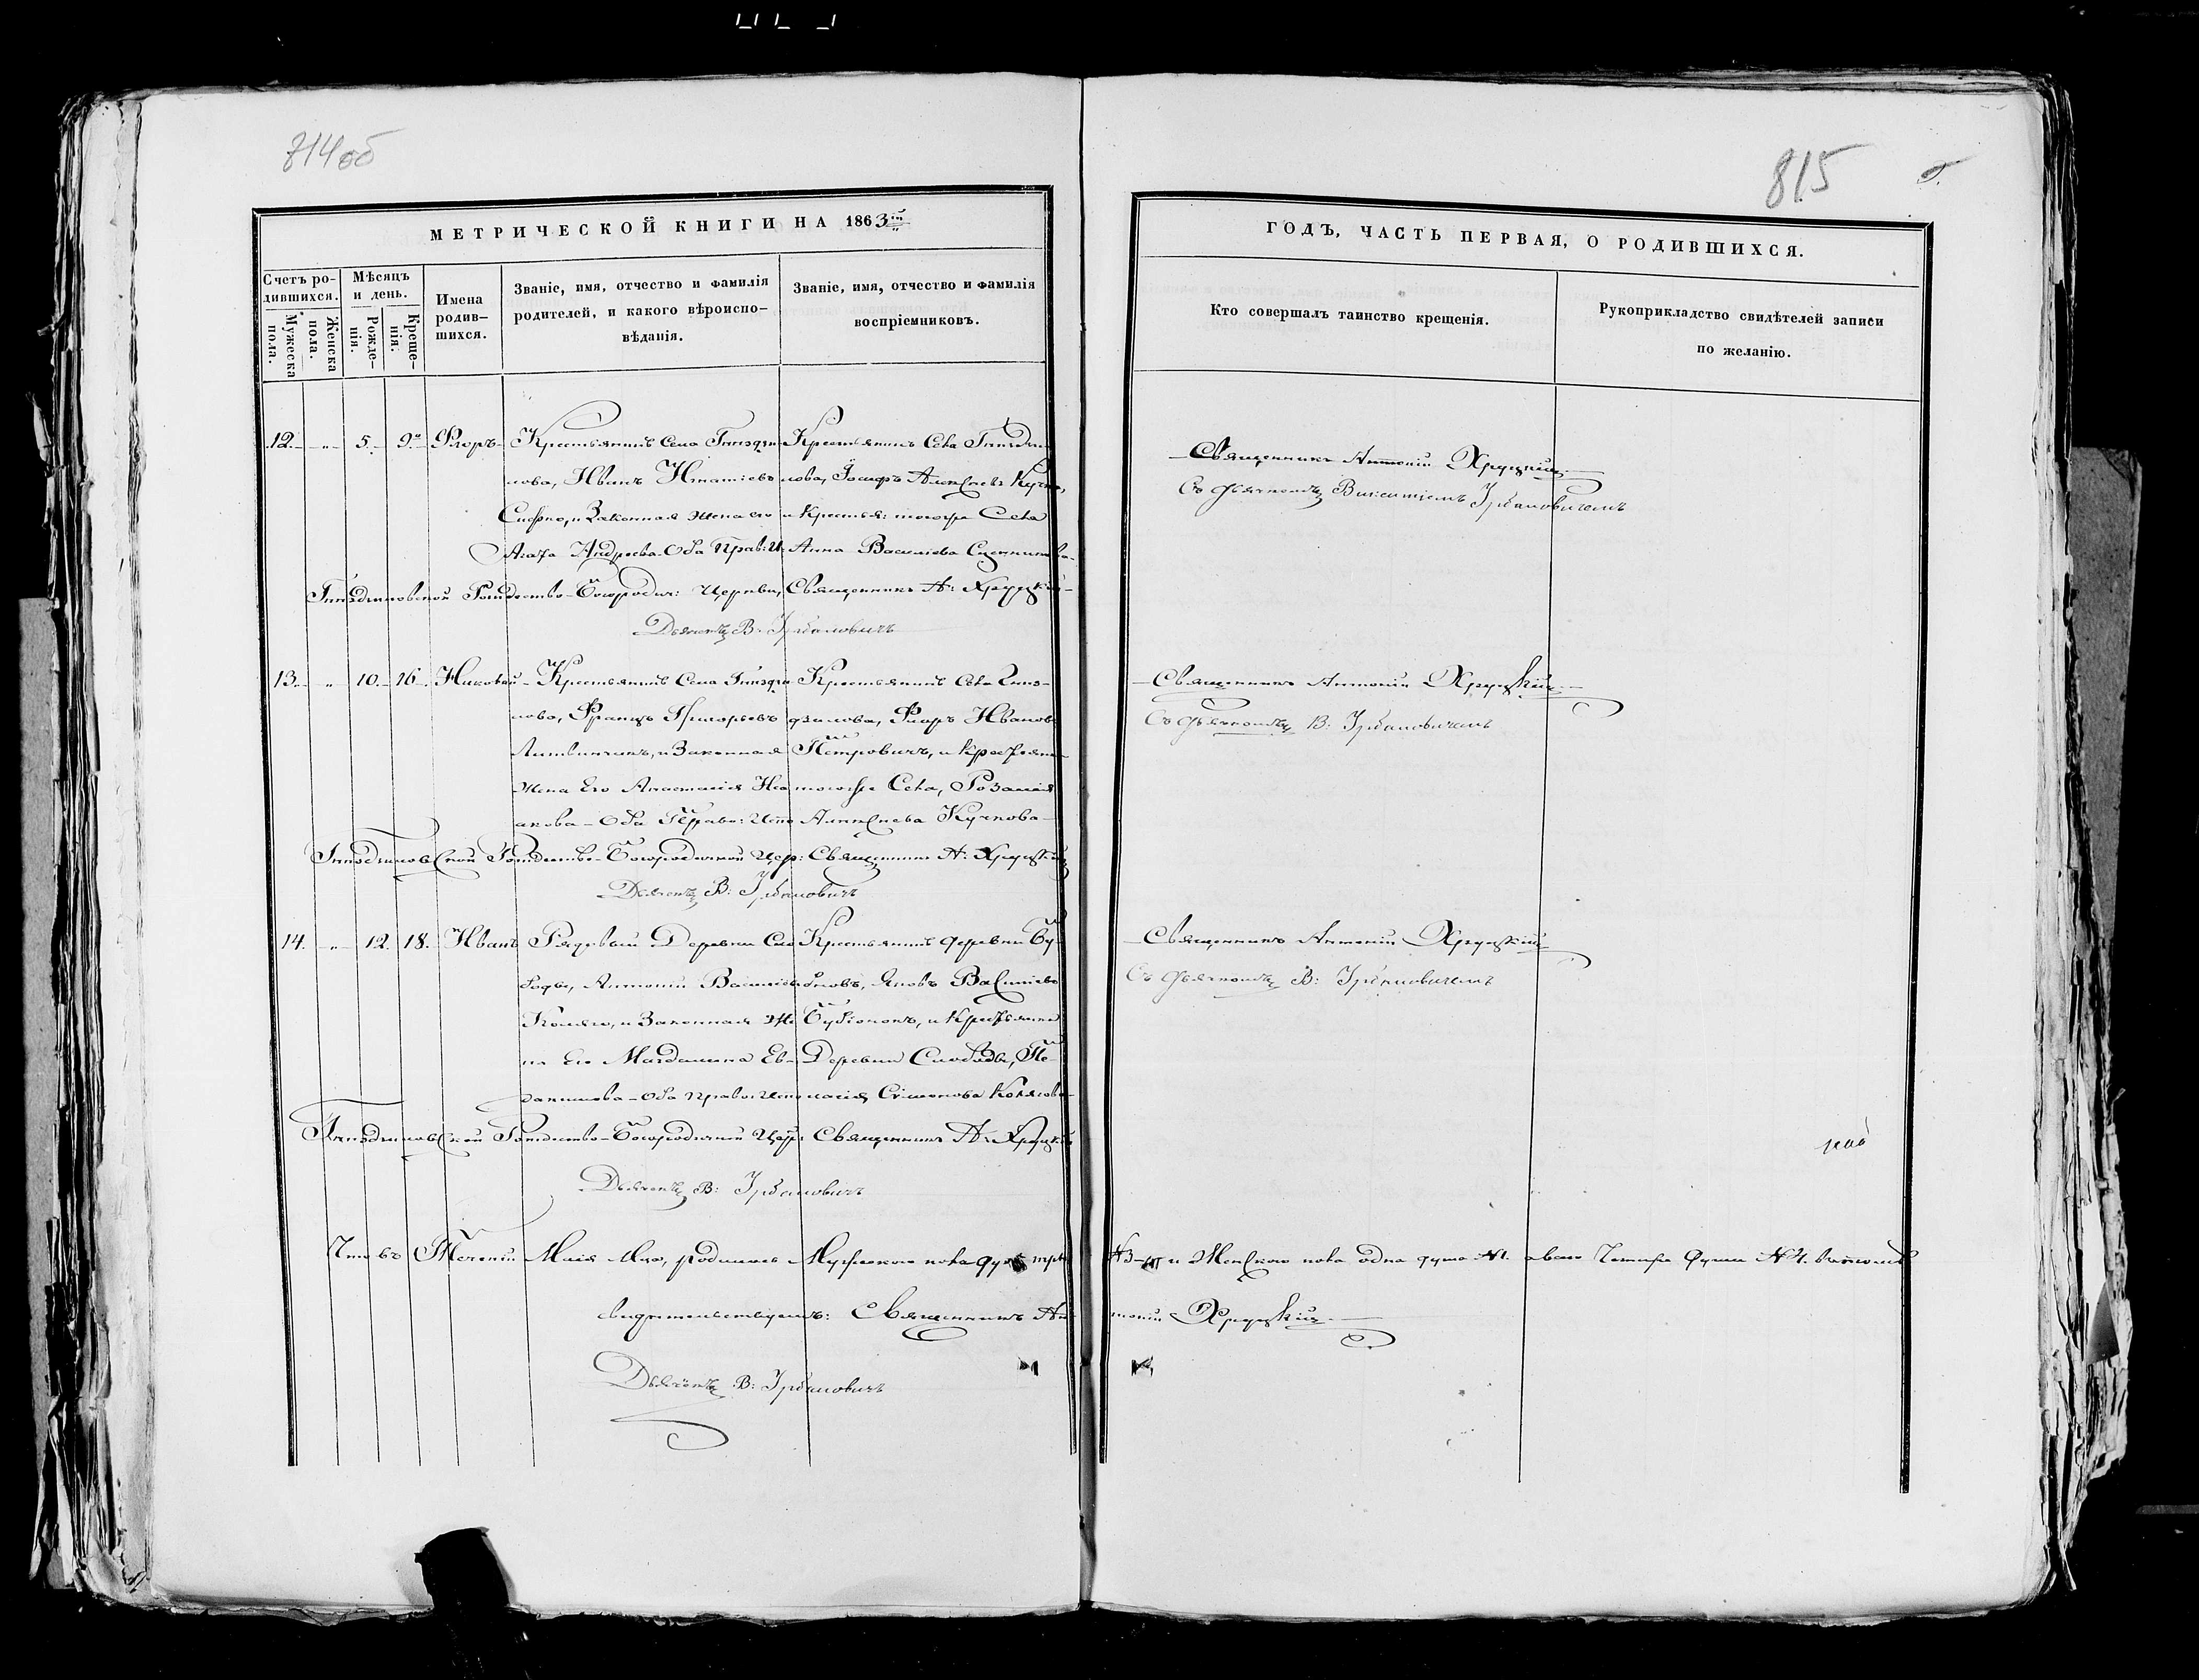 814об
815
МЕТРИЧЕСКОЙ КНИГИ НА 1863й
ГОДЪ, ЧАСТЬ ПЕРВАЯ, О РОДИВШИХСЯ.
Счетъ родившихся.
Мужеска пола.
Женска пола.
Мѣсяцъ и день.
Рожденія.
Крещенія.
Имена родившихся.
Званіе, имя, отчество и фамилія родителей, и какого вѣроисповѣданія.
Званіе, имя, отчество и фамилія воспріемниковъ.
Кто совершалъ таинство крещенія.
Рукоприкладство свидѣтелей записи по желанію.
12. „ 5. 9. Флоръ
Крестьянинъ Села Гнѣзди
лова, Иванъ Игнатіевъ
и Законная жена его
Агафа Андреева Оба Прав: И
Крестьянинъ Села Гнѣзди
лова, Іосифъ Алексѣевъ
и Крестья: тогожъ Села
Анна Василіева
Священникъ Антоній Хруцкій
Съ Дьячкомъ Викентіемъ Урбановичемъ
Гнѣздиловской Рождество-Богородич: Церкви, Священникъ А: Хруцкій
Дьячекъ В: Урбановичъ
13. „ 10. 16. Николай
Крестьянинъ Села Гнѣзди
лова, Францъ Григорьевъ
Литвинчикъ, и Законная
жена Его Анастасія Иса
акова Оба Право: Испо
Крестьянинъ Села Гнѣз-
дзилова, Флоръ Ивановъ
Петровичъ, и Крестьянка
тогожъ Села, Розалія
Алексѣева Кучкова
Священникъ Антоній Хруцкій
Съ Дьячкомъ В: Урбановичемъ
Гнѣздиловской Рождество-Богородичной Цер: Священникъ А: Хруцкій
Дьячекъ В: Урбановичъ
14. „ 12. 18. Иванъ
Рядовый Деревни Сло
боды, Антоній Василіевъ
Коляго, и Законная Же
на Его Магдалина Ев-
Оба Право: Испо
Крестьянинъ деревни Бу-
Яковъ Василіевъ
и Крестьянка
Деревни Слободы, Пе-
лагія, Симонова Колягова
Священникъ Антоній Хруцкій
Съ Дьячкомъ В: Урбановичемъ
Гнѣздиловской Рождество-Богородичной Цер: Священникъ А: Хруцкій
Дьячекъ В: Урбановичъ
Что въ Теченіи Маія М-ца, родилось Мужескаго пола душъ три № 3-ри и Женскаго пола одна душа № 1. а всего Четыре Души № 4. въ томъ
свидѣтельствуемъ: Священникъ Антоній Хруцкій
Дьячекъ В: Урбановичъ